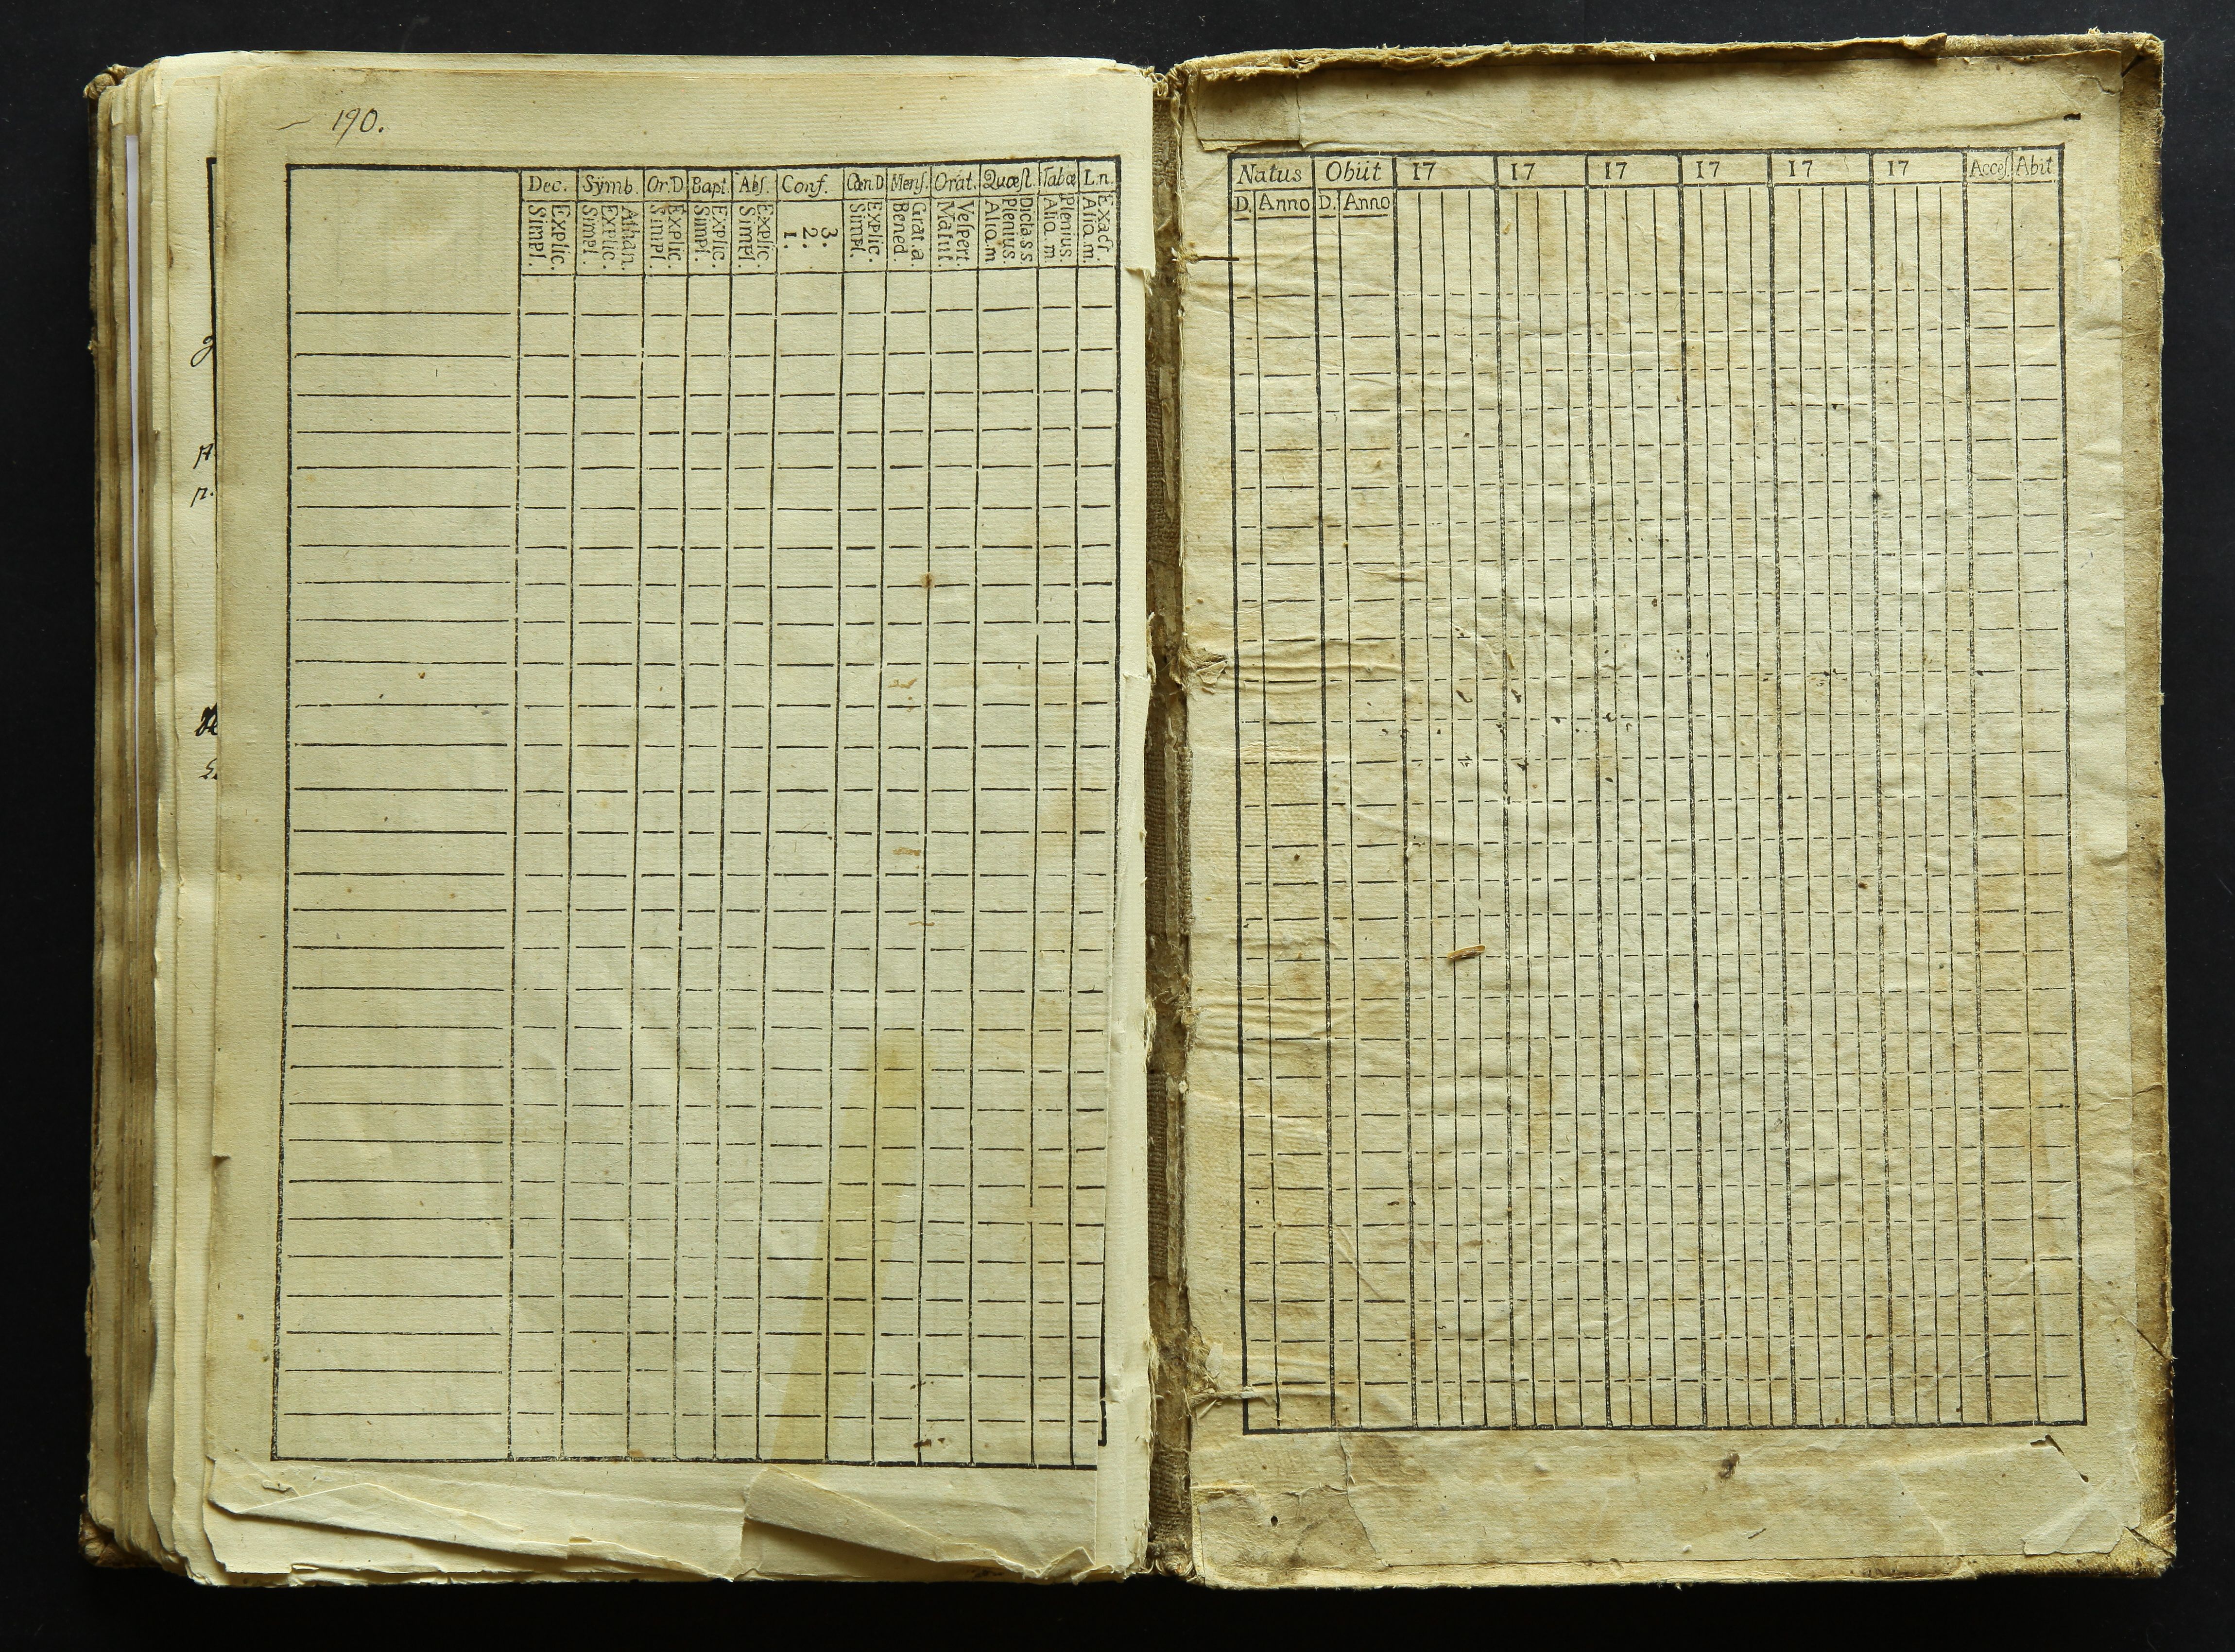 190.
Dec. Symb. Or.D Bapt. Abs. Conf. Cœn.D Mens. Orat. Quæst. Tabœ L.n.
Simpl. Explic. Simpl. Explic. Athan. Simpl. Explic. Simpl. Explic. Simpl. Explic. 1. 2. 3. Simpl. Explic. Bened. Grat.a. Matut. Vespert. Aliq.m Plenius. Dicta.s s. Aliq.m Plenius. Aliq.m. Exact.
Natus Obiit 17 17 17 17 17 17 Acces. Abit
D. Anno D. Anno